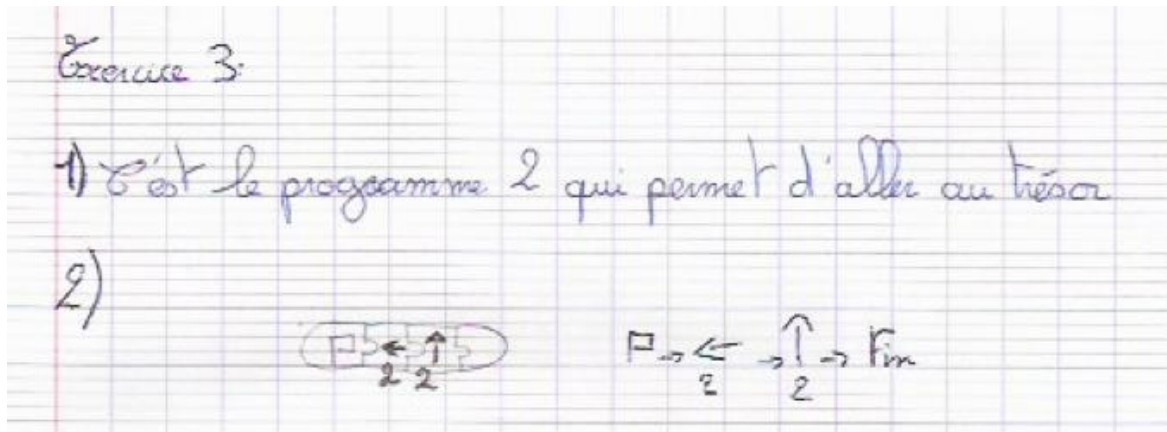 Exercice 3:
1) C'est le programme 2 qui permet d'aller au trésor
2)
P ← 2 ↑ 2 P → ← 2 → ↑ 2 → Fin